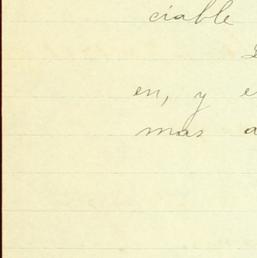 ciable
en, y e
mas a